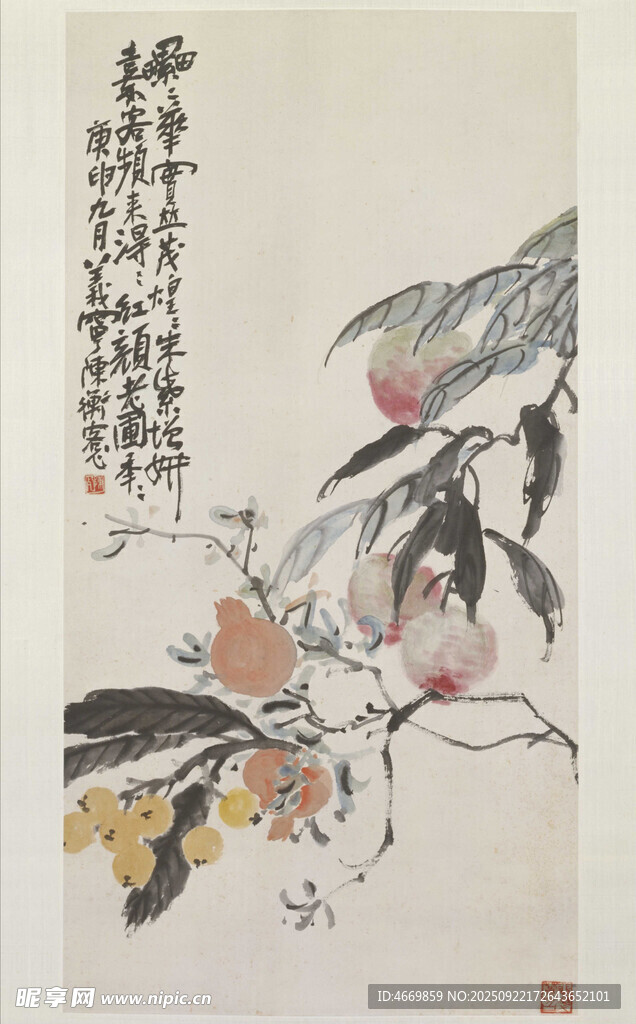 纍〻華實並茂煌〻朱紫增妍
嘉客頻来淂〻紅顔老圃秊〻
庚申九月義寧陳衡愙
昵享网 www.nipic.cn
ID:4669859 NO:20250922172643652101